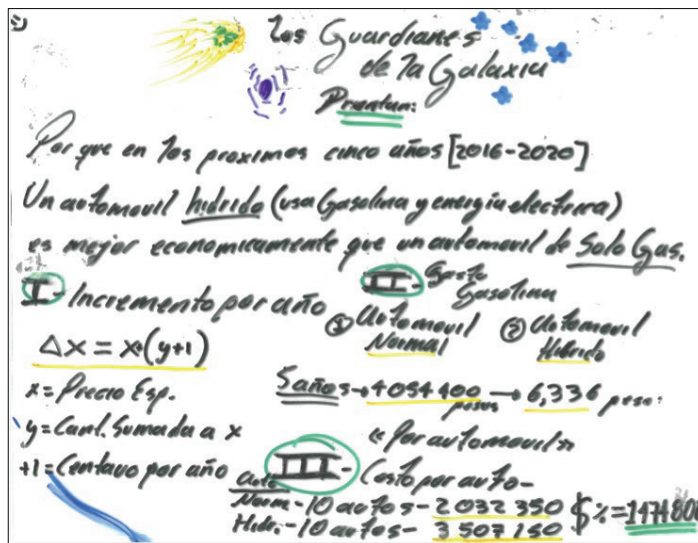 Los Guardianes
de la Galaxia
Presentan:
Por que en los proximos cinco años [2016-2020]
Un automovil hidrido (usa Gasolina y energia electrica)
es mejor economicamente que un automovil de Solo Gas.
I- Incremento por año
Δx = x•(y+1)
x= Precio Esp.
y= Cant. Sumada a x
+1= Centavo por año
II- Gasto Gasolina
① Automovil Normal
② Automovil Hibrido
5 años → 4054400 pesos → 6,336 pesos
«Por automovil»
III- Costo por auto-
Auto
Norm.-10 autos- 2032350
Hidr.-10 autos- 3507150
$%=1474800